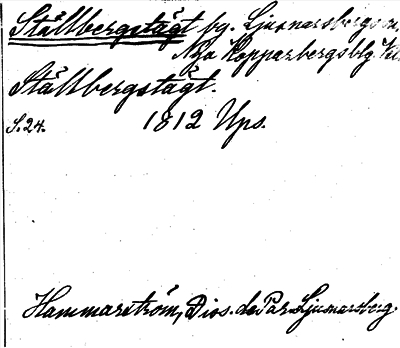 Ställbergstägt bg. Ljusnarsbergs sn,
Nya Kopparbergs blg.
Ställbergstägt.
S. 24. 1812 Ups.
Hammarström, Diss. de Par. Ljusnarsberg.